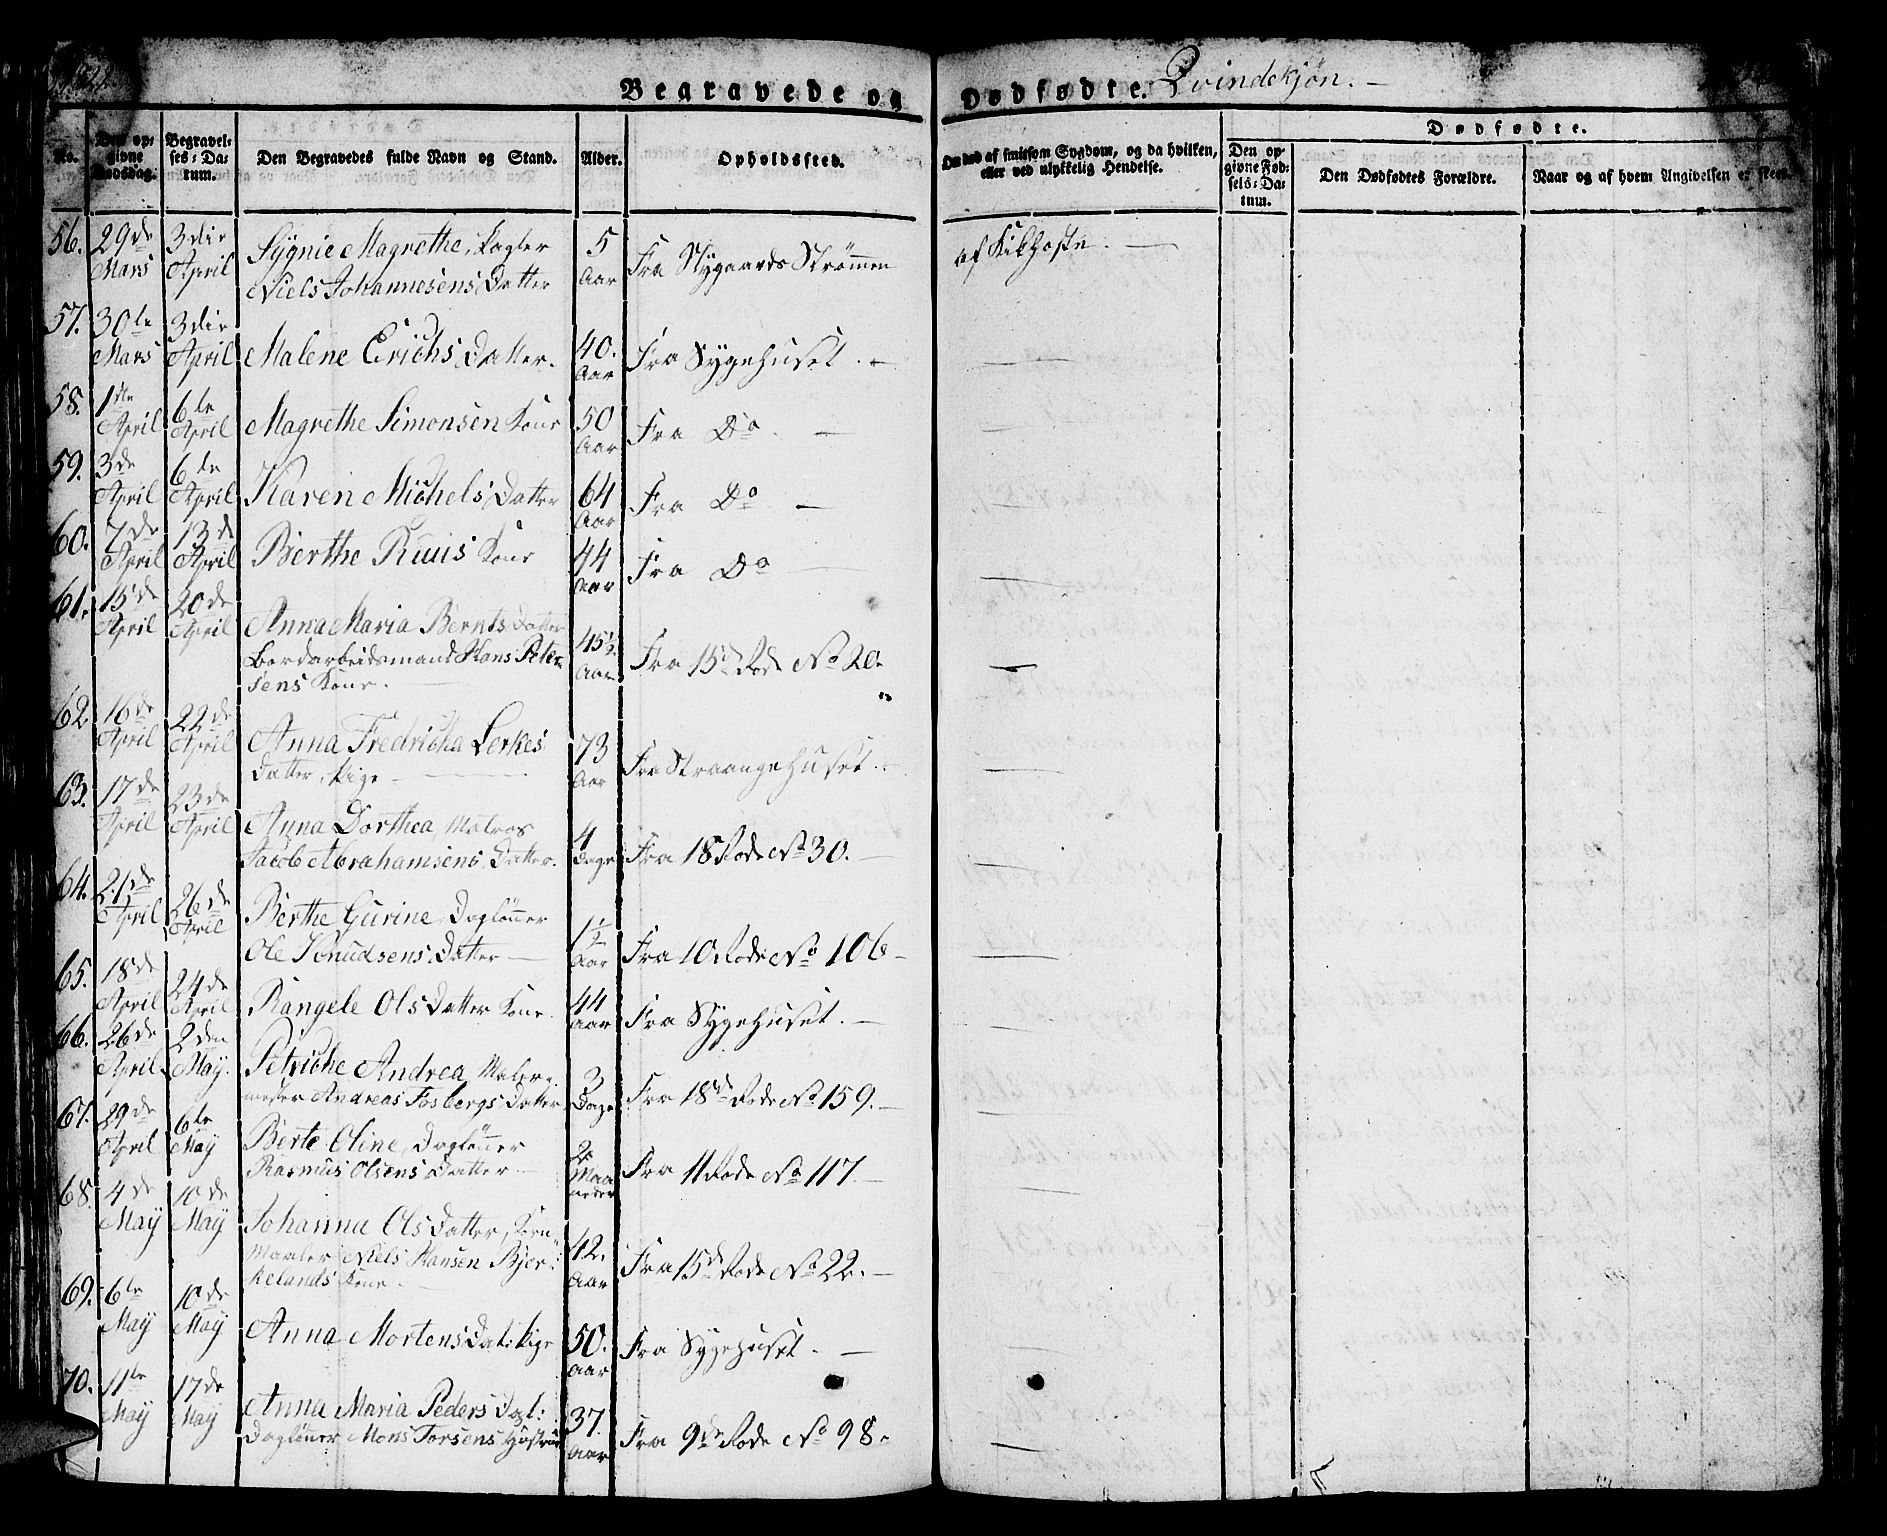 Begravede og Dødfødte. Qvindekjøn. —
No.
Den opgivne Dødsdag.
Begravelses-Datum.
Den Begravedes fulde Navn og Stand.
Alder.
Opholdssted.
Om død af smitsom Sygdom, og da hvilken, eller ved ulykkelig Hendelse.
Dødfødte.
Den opgivne Fødsels-Datum.
Den Dødfødtes Forældre.
Naar og af hvem Angivelsen er skeet.
56. 29de Mars 3die April Sÿgnie Magrethe,
Niels Johannesens Datter 5 Aar Fra Stÿgaards Strømmen af Kikhoste. —
57. 30te Mars 3die April Malene Erichs Datter. 40. Aar Fra Sÿgehuset. —
58. 1ste April 6te April Magrethe Simonsen Kone 50 Aar Fra Do. —
59. 3de April 6te April Karen Michels Datter 64 Aar Fra Do —
60. 7de April 13de April Berthe Ruus Kone 44 Aar Fra Do —
61. 15de April 20de April Anna Maria Bernts Datter
Bordarbeidsmand Hans Peter-
sens Kone. — 45½ Aar Fra 15de Rode No 20.
62. 16de April 22de April Anna Fredricha Lerkes
Datter, Pige — 73 Aar Fra Straangehuset. —
63. 17de April 23de April Anna Dorthea, Matros
Jacob Abrahamsens Datter. 4 Dage Fra 18 Rode No 30. —
64. 21de April 26de April Berthe Gurine, Dagløñer
Ole Knudsens Datter — 1½ Aar Fra 10 Rode No 106 —
65. 18de April 24de April Rangele Ols Datter Kone. 44 Aar Fra Sÿgehuset. —
66. 26de April 2den Maÿ. Petriche Andrea, Maler-
mester Andreas Fosbergs Datter 3 Dage Fra 18de Rode No 159. —
67. 29de April 6te Maÿ Berte Oline, Dagløñer
Rasmus Olsens Datter — 2 Maaneder Fra 11 Rode No 117. —
68. 4de Maÿ 10de Maÿ Johanna Ols Datter, Korn-
Maaler Niels Hansen Bjer-
kelands Kone — 42. Aar Fra 15de Rode No 22. —
69. 6te Maÿ 10de Maÿ Anna Mortens Dat: Pige 50. Aar Fra Sÿgehuset. —
70. 11te Maÿ 17de Maÿ Anna Maria Peders Dat:
Dagløñer Mons Torsens Hustrue 37. Aar Fra 9de Rode No 98.